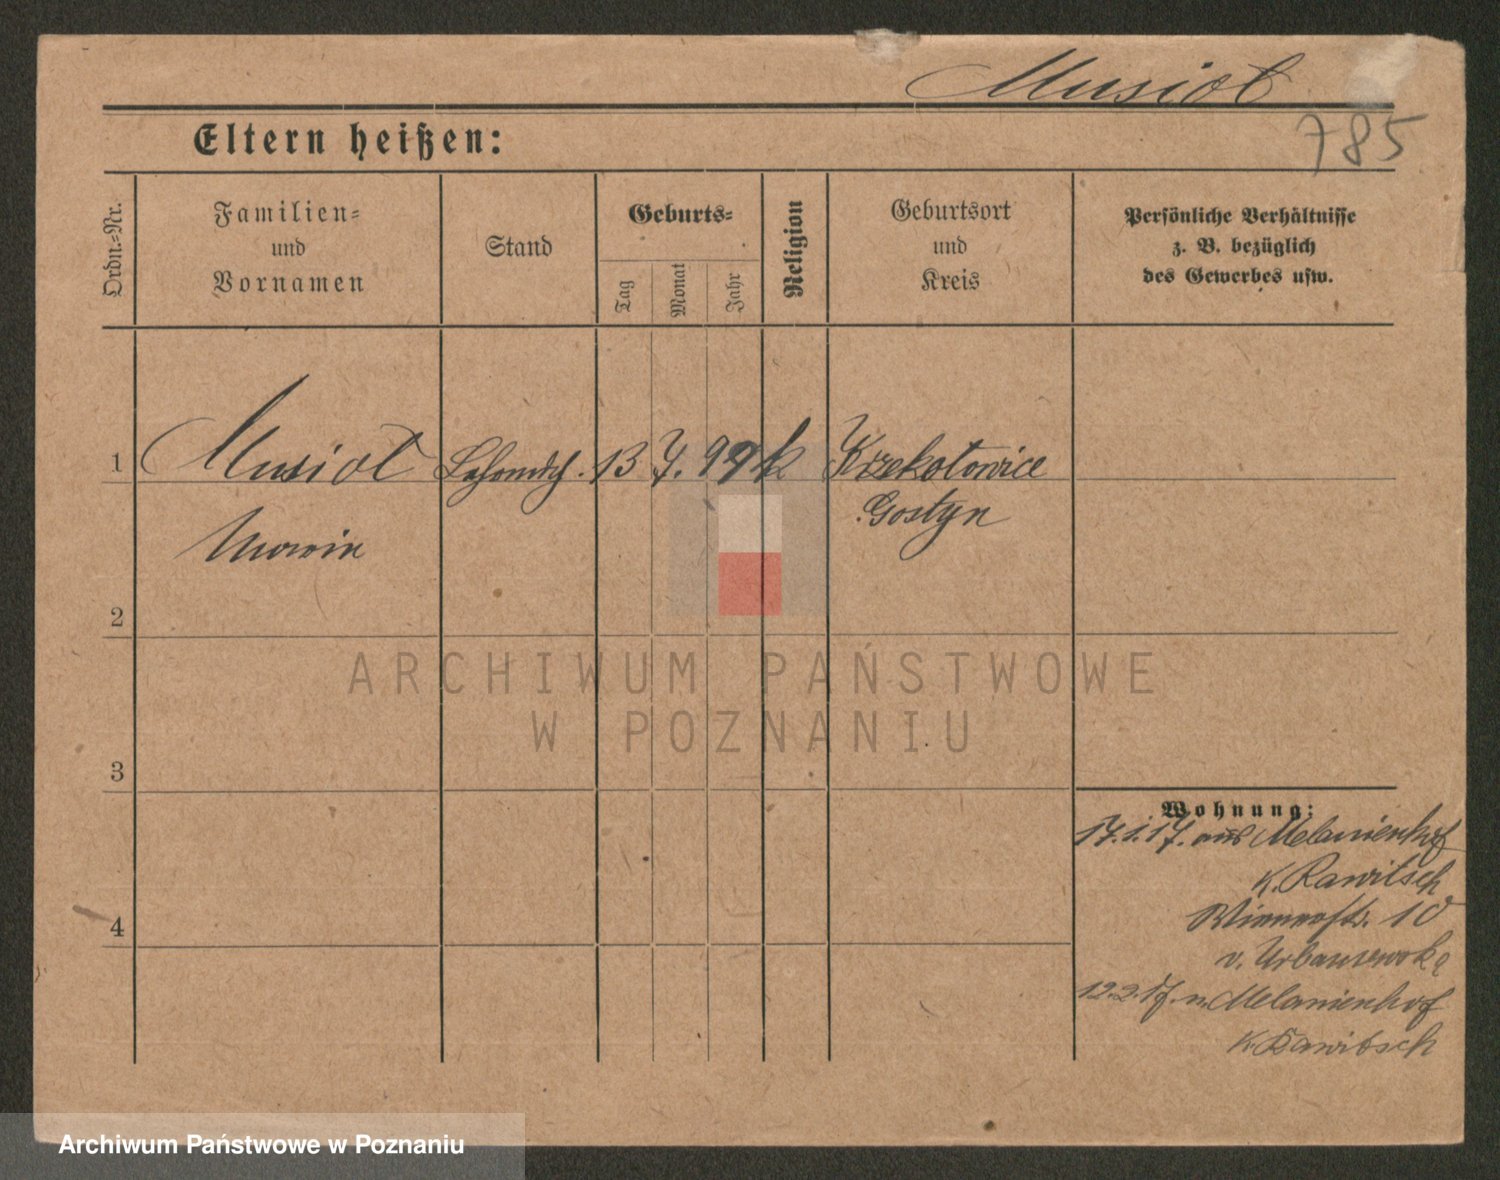 Musiol
785
Eltern heißen:
Ordn.-Nr.
Familien-
und
Vornamen
Stand
Geburts-
Tag
Monat
Jahr
Religion
Geburtsort
und
Kreis
Persönliche Verhältnisse
z. B. bezüglich
des Gewerbes usw.
1
Musiol
13 7. 99 k
Krekotowice
Gostyn
2
ARCHIWUM PAŃSTWOWE
W POZNANIU
3
Wohnung:
17.1.17. aus Melanienhof
K. Rawitsch
10
v.
12.2.17. n. Melanienhof
K. Rawitsch
4
Archiwum Państwowe w Poznaniu